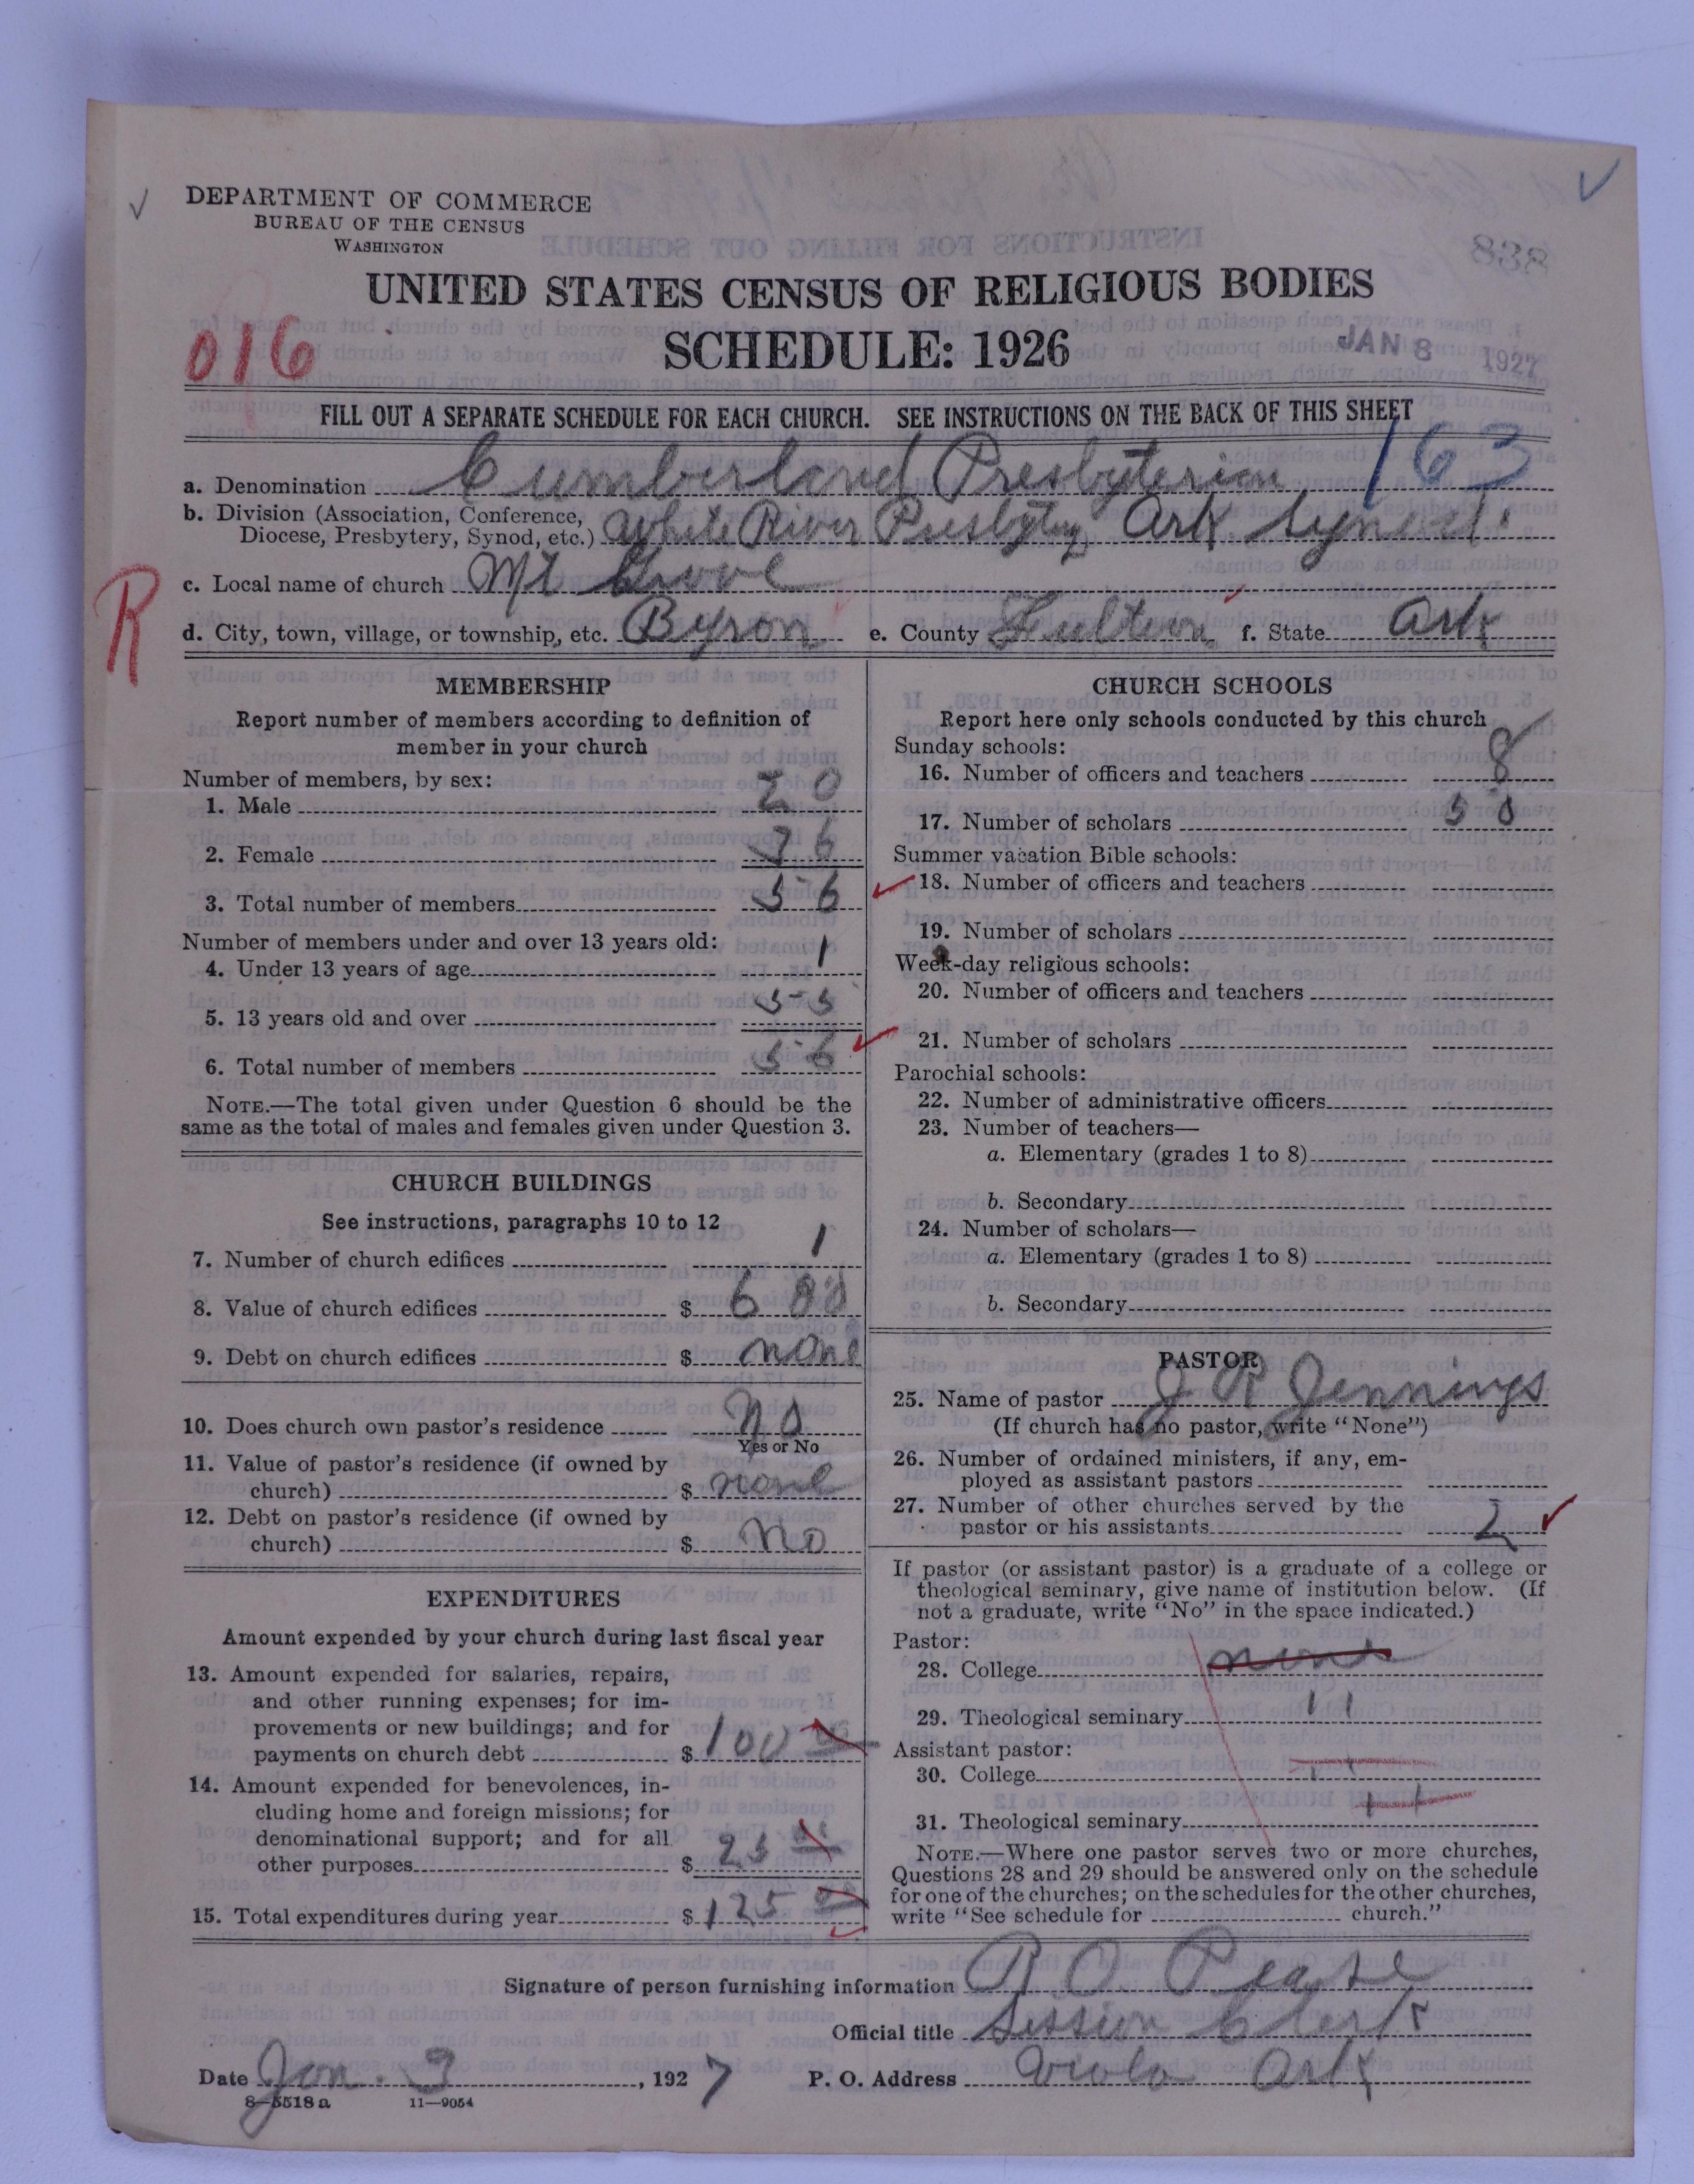 DEPARTMENT OF COMMERCE
BUREAU OF THE CENSUS
WASHINGTON
838
UNITED STATES CENSUS OF RELIGIOUS BODIES
SCHEDULE: 1926
016
JAN 8 1927
FILL OUT A SEPARATE SCHEDULE FOR EACH CHURCH. SEE INSTRUCTIONS ON THE BACK OF THIS SHEET
a. Denomination Cumberland Presbyterian 163
b. Division (Association, Conference, Diocese, Presbytery, Synod, etc.) White River Presbytery Ark Synod
c. Local name of church Mt Grove
R
d. City, town, village, or township, etc. Byron e. County Fulton f. State Ark
MEMBERSHIP
Report number of members according to definition of
member in your church
Number of members, by sex:
1. Male 20
2. Female 36
3. Total number of members 56
Number of members under and over 13 years old:
4. Under 13 years of age 1
5. 13 years old and over 55
6. Total number of members 56
NOTE.—The total given under Question 6 should be the
same as the total of males and females given under Question 3.
CHURCH BUILDINGS
See instructions, paragraphs 10 to 12
7. Number of church edifices 1
8. Value of church edifices $ 600
9. Debt on church edifices $ none
10. Does church own pastor's residence No
Yes or No
11. Value of pastor's residence (if owned by
church) $ none
12. Debt on pastor's residence (if owned by
church) $ No
EXPENDITURES
Amount expended by your church during last fiscal year
13. Amount expended for salaries, repairs,
and other running expenses; for im-
provements or new buildings; and for
payments on church debt $ 100
14. Amount expended for benevolences, in-
cluding home and foreign missions; for
denominational support; and for all
other purposes $ 25
15. Total expenditures during year $ 125
CHURCH SCHOOLS
Report here only schools conducted by this church
Sunday schools:
16. Number of officers and teachers 8
17. Number of scholars 50
Summer vacation Bible schools:
18. Number of officers and teachers
19. Number of scholars
Week-day religious schools:
20. Number of officers and teachers
21. Number of scholars
Parochial schools:
22. Number of administrative officers
23. Number of teachers—
a. Elementary (grades 1 to 8)
b. Secondary
24. Number of scholars—
a. Elementary (grades 1 to 8)
b. Secondary
PASTOR
25. Name of pastor J R Jennings
(If church has no pastor, write "None")
26. Number of ordained ministers, if any, em-
ployed as assistant pastors
27. Number of other churches served by the
pastor or his assistants 2
If pastor (or assistant pastor) is a graduate of a college or
theological seminary, give name of institution below. (If
not a graduate, write "No" in the space indicated.)
Pastor:
28. College none
29. Theological seminary 11
Assistant pastor:
30. College 11
31. Theological seminary 11
NOTE.—Where one pastor serves two or more churches,
Questions 28 and 29 should be answered only on the schedule
for one of the churches; on the schedules for the other churches,
write "See schedule for church."
Signature of person furnishing information R O Pease
Official title Session Clerk
Date Jan. 3, 1927 P. O. Address Viola Ark
8—5518 a 11—9054